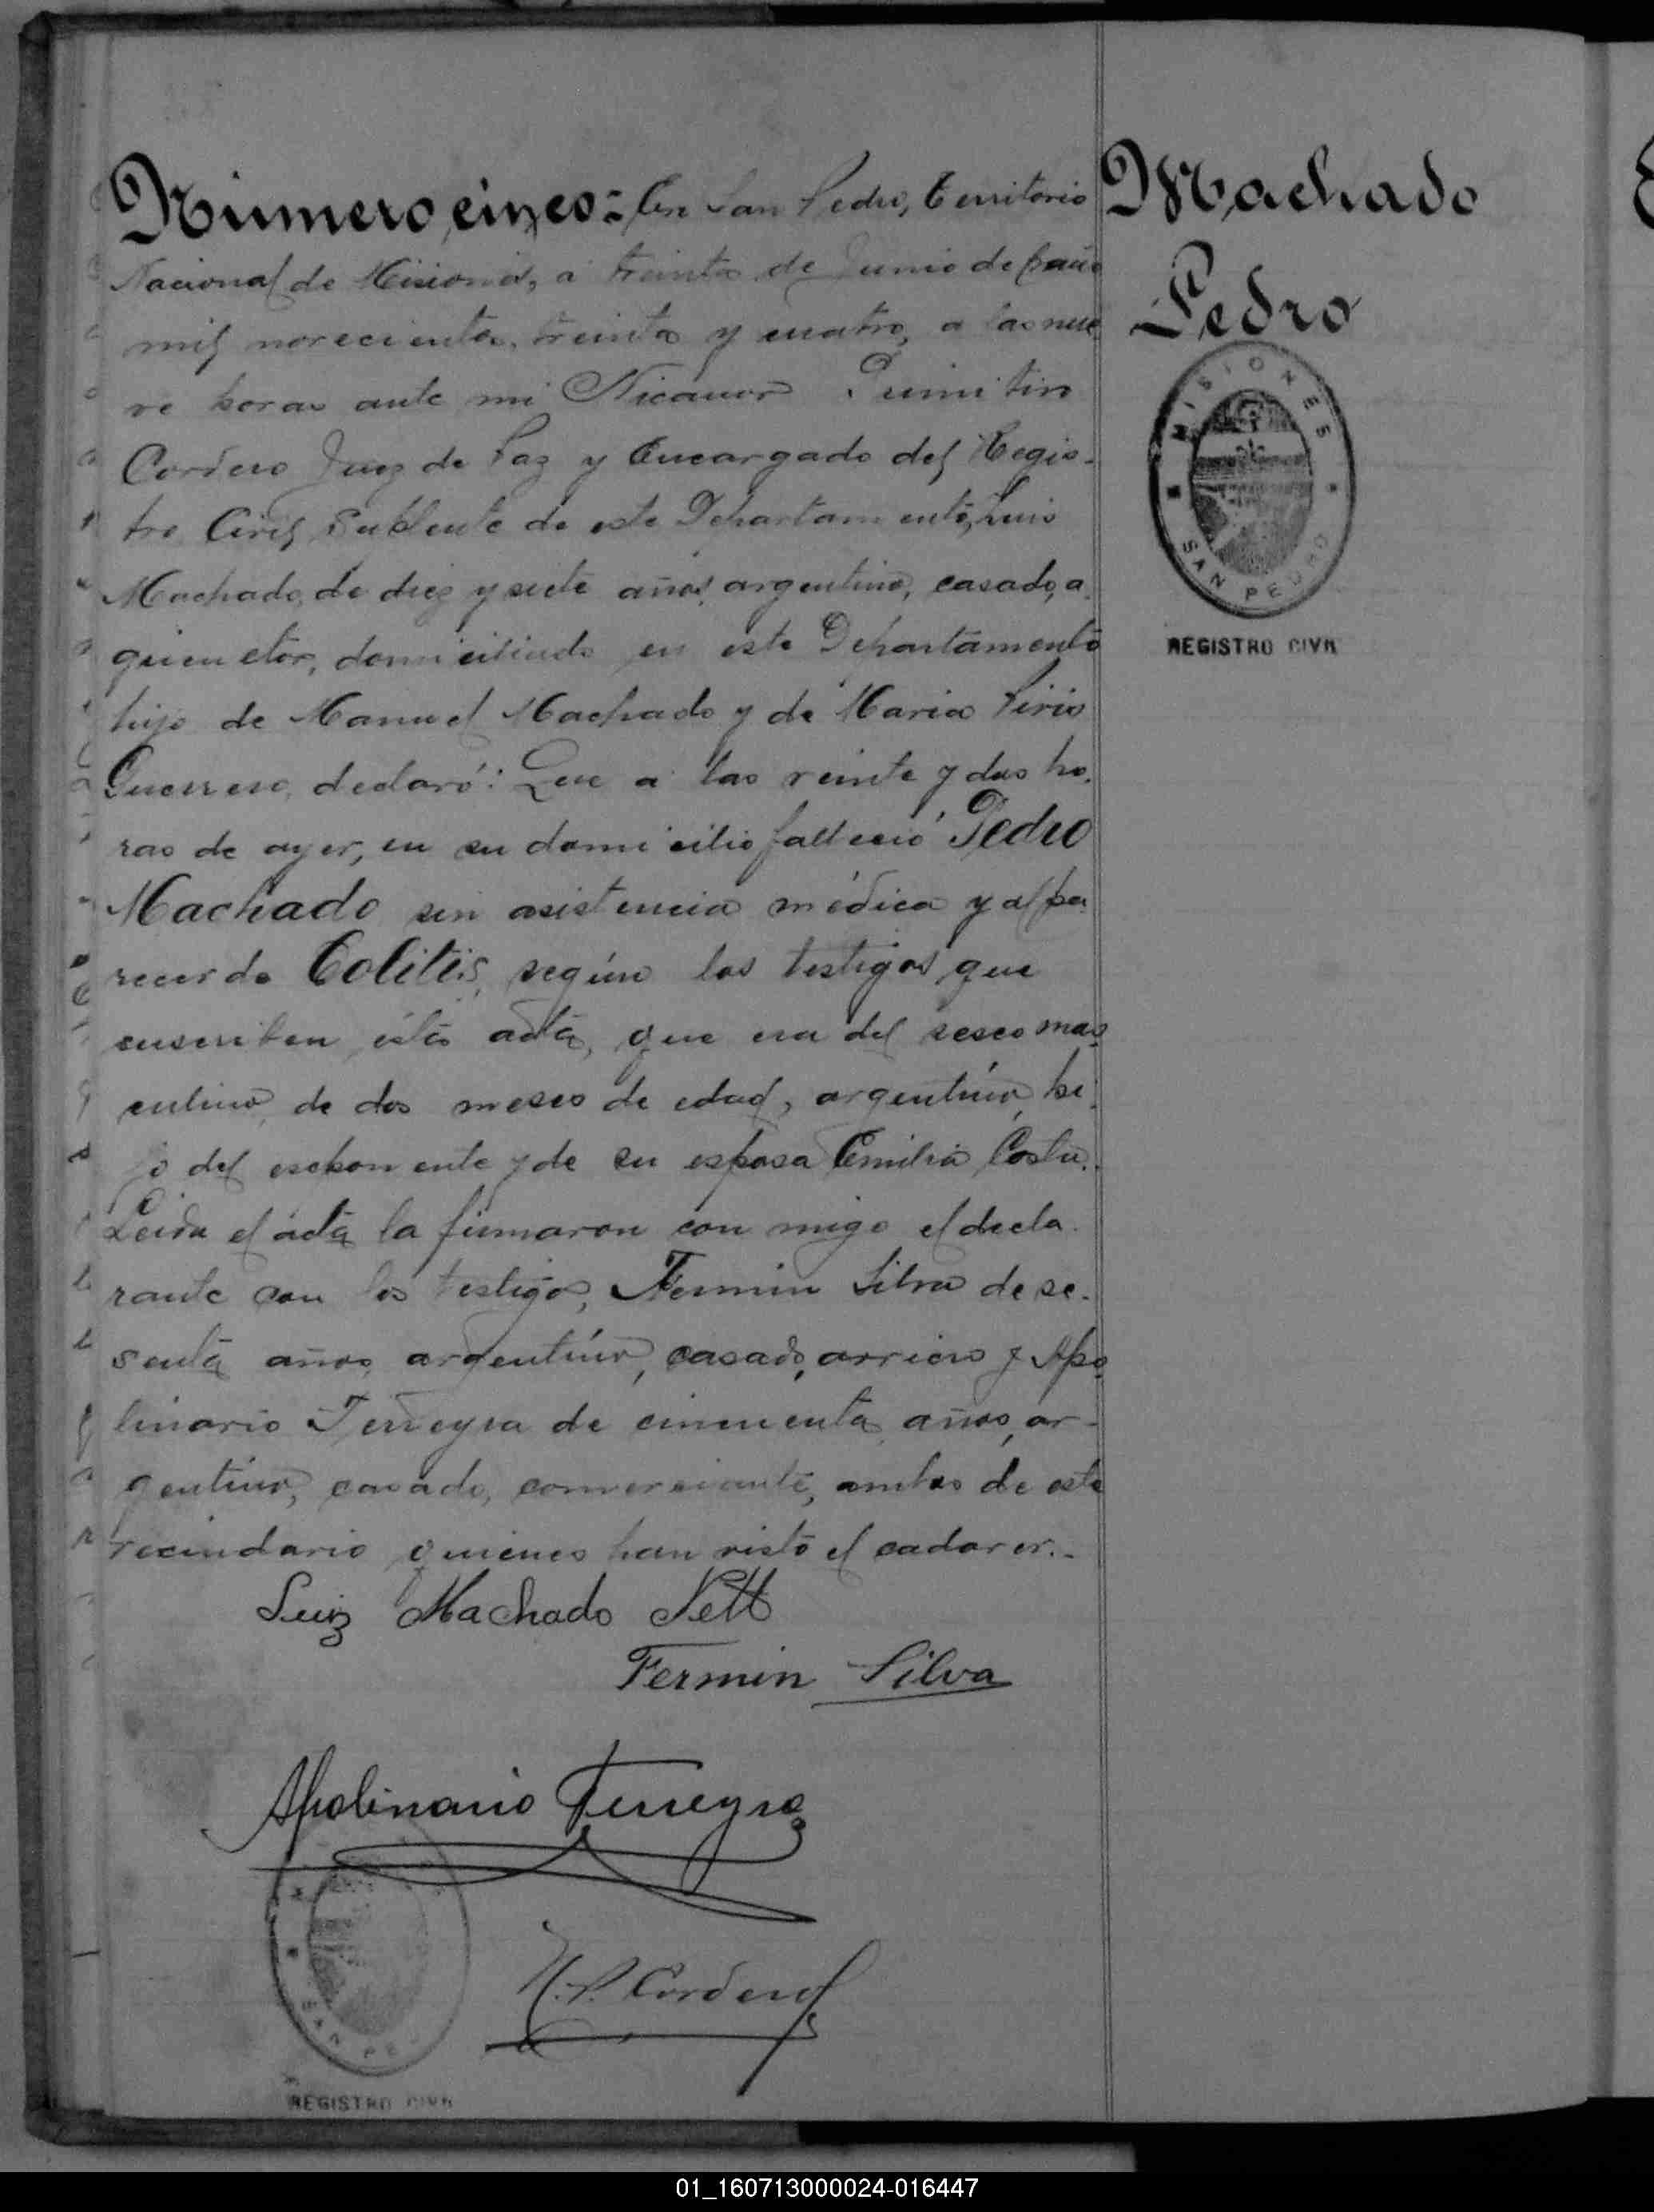 Número cinco: En San Pedro, Territorio
Nacional de Misiones, a treinta de Junio de
mil novecientos treinta y cuatro, a las nue
ve horas ante mi Nicanor Primitivo
Cordero Juez de Paz y Encargado del Regis-
tro Civil Suplente de este Departamento, Luis
Machado, de diez y siete años, argentino, casado, a
domiciliado en este Departamento
hijo de Manuel Machado y de Maria
Guerrero, declaró: Que a las veinte y dos ho.
ras de ayer, en su domicilio falleció Pedro
Machado sin asistencia médica y al pa
recer de Colitis, según los testigos que
suscriben esta acta, que era del sexo mas
culino, de dos meses de edad, argentino, hi
jo del exponente y de su esposa Emilia
Leida el acta la firmaron con migo el decla.
rante con los testigos, Fermin Silva de se-
senta años, argentino, casado, arriero y Apo
linario Terreyra de cincuenta años, ar-
gentino, casado, comerciante, ambos de este
vecindario quienes han visto el cadaver.-
Luiz Machado Nett
Fermin Silva
Apolinario Ferreyra
N.P. Cordero
SAN PE
REGISTRO CIVIL
Machado
Pedro
MISIONES
SAN PEDRO
REGISTRO CIVIL
01_160713000024-016447